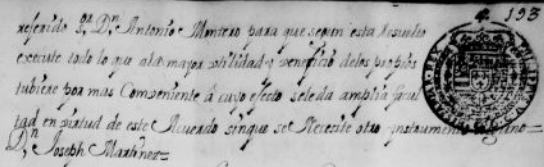 193
referido Sr. Dn. Antonio Montero para que segun esta Resuelto
execute todo lo que ala mayor utilidad y veneficio delos propios
tubiere por mas Combeniente â cuyo efecto seleda amplia facul
tad en virtud de este Acuerdo sinque se Necesite otro ynstrumento
Dn. Joseph Martinez=